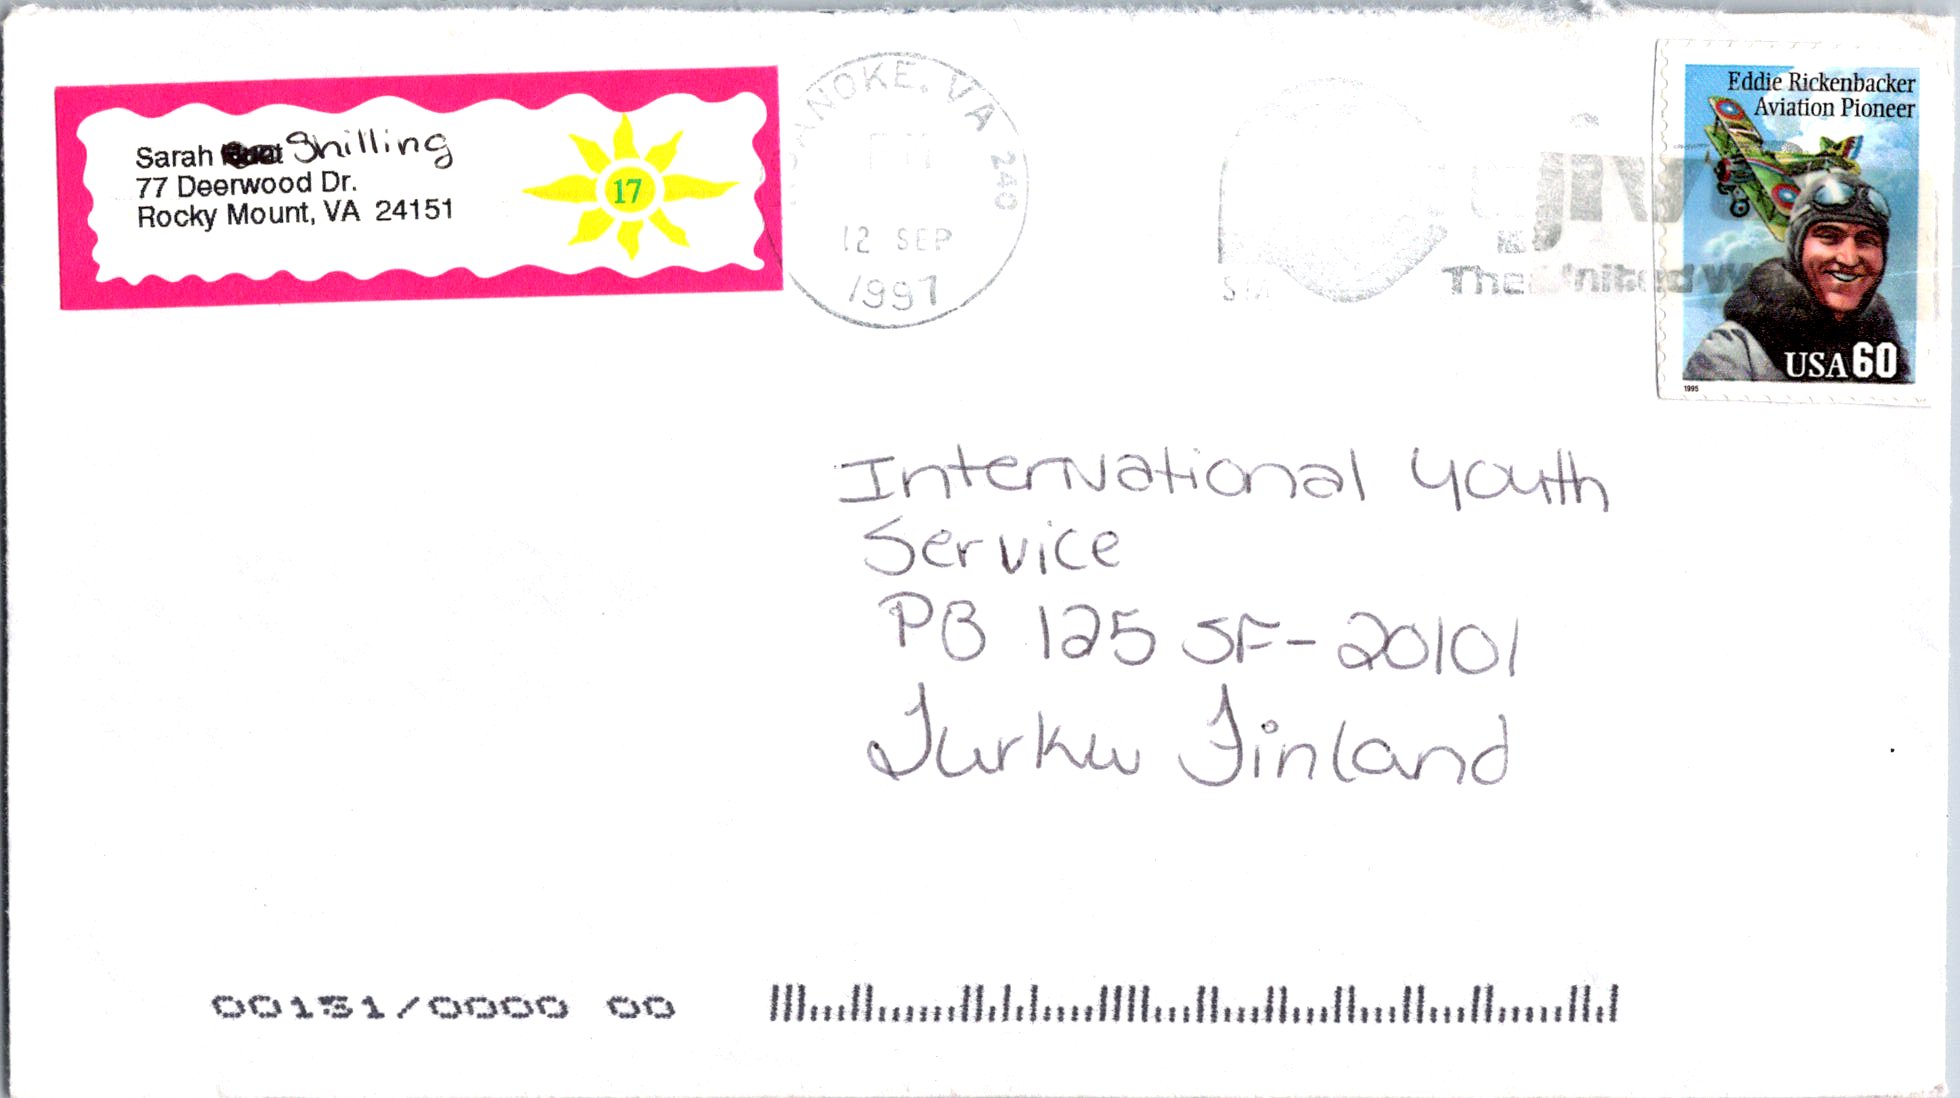 Sarah Shilling
77 Deerwood Dr.
Rocky Mount, VA 24151
17
ROANOKE, VA 240
12 SEP
1997
The United W
Eddie Rickenbacker
Aviation Pioneer
USA 60
1995
International Youth
Service
PB 125 SF-20101
Turku Finland
00151/0000 00